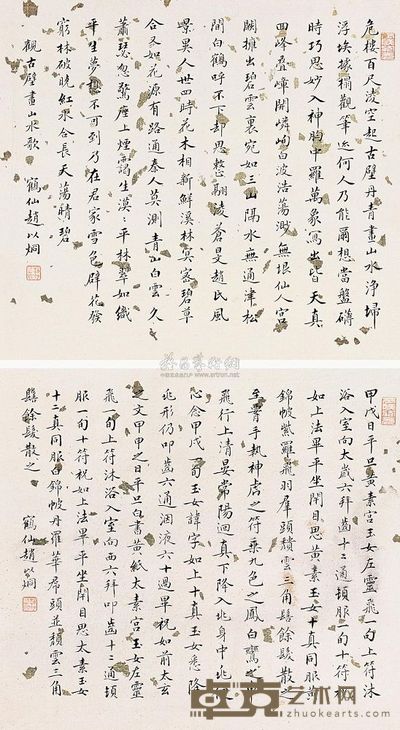 危楼百尺淩空起古壁丹青畫山水淨埽
浮埃據榻觀筆迹何人乃能爾想當盤礴
時巧思妙入神胸中羅萬象寫出皆天真
四峰疊嶂開嶙峋白波浩蕩渺無垠仙人宮
闕擁出碧雲裏宛如三山隔水無通津松
間白鶴呼不下却思整翮淩蒼旻趙氏風
景異人世四時花木相新鮮溪林冥密碧草
合又如花源有路通秦人莫測青山白雲久
蕭瑟忽驚座上煙靄生漠漠平林翠如織
平生夢想不可到乃在君家雪色壁花發
窮林破晚紅水合長天蕩晴碧
觀古壁畫山水歌 鶴仙趙以炯
甲戌日平旦黃素宮玉女左靈飛一旬上符沐
浴入室向太歲六拜叩齒十二通頓服一旬十符祝
如上法畢平坐閉目思黃素玉女十真同服黃
錦帔紫羅飛羽羣頭頹雲三角髻餘髮散之
至胷手執神虎之符乘九色之鳳白鸞之車
飛行上清晏常陽迴真下降入兆身中兆便
心念甲戌一旬玉女諱字如上十真玉女悉降
兆形仍叩齒六通咽液六十過畢祝如前太玄
之文甲申之日平旦白書黃紙太素宮玉女左靈
飛一旬上符沐浴入室向西六拜叩齒十二通頓
服一旬十符祝如上法畢平坐閉目思太素玉女
十二真同服白錦帔丹羅華帬頭並頹雲三角
髻餘髮散之 鶴仙趙以炯
卓克艺术网
www.zhuokearts.com